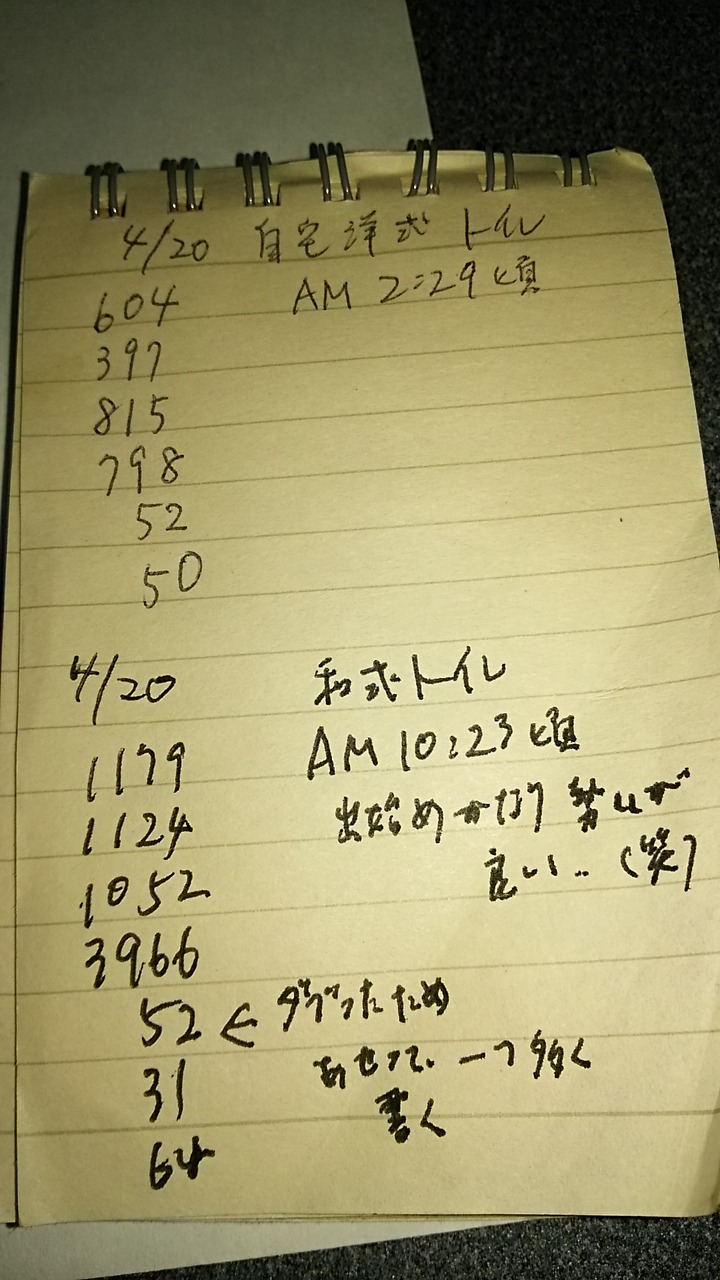 4/20 自宅洋式トイレ
604 AM 2:29頃
397
815
798
52
50
4/20 和式トイレ
1179 AM 10:23頃
1124 出始めかなり勢いが
1052 良い‥(笑)
3966
52 ← ダブったため
31 あせって、一つ多く
64 書く